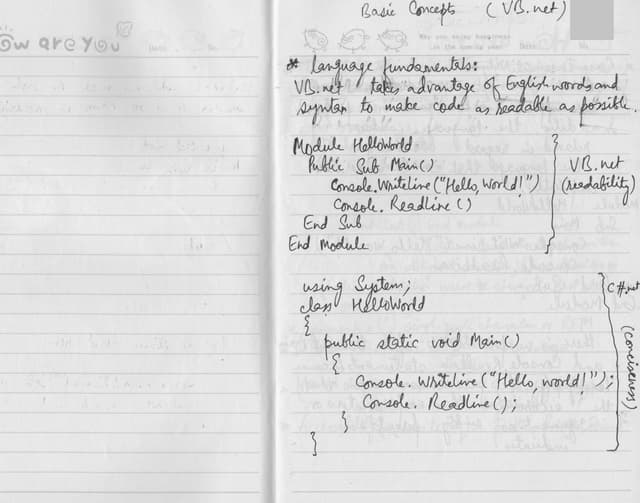 Basic Concepts (VB.net)
ow are you
* Language fundamentals:
VB.net takes advantage of English words and
syntax to make code as readable as possible.
Module HelloWorld
Public Sub Main()
Console.Writeline("Hello, World!")
Console.Readline()
End Sub
End Module
VB.net
(readability)
using System;
class HelloWorld
{
public static void Main()
{
Console.Writeline("Hello, world!");
Console.Readline();
}
}
C#.net
(Conciseness)